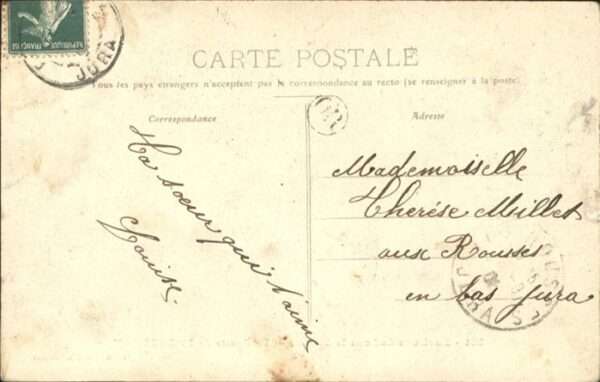 REPUBLIQUE FRANÇAISE
JURA
CARTE POSTALE
Tous les pays étrangers n'acceptent pas la correspondance au recto (se renseigner à la poste)
Correspondance
Adresse
Ta sœur qui t'aime
Louise
Mademoiselle
Thérèse Millet
aux Rousses
en bas Jura
JURA